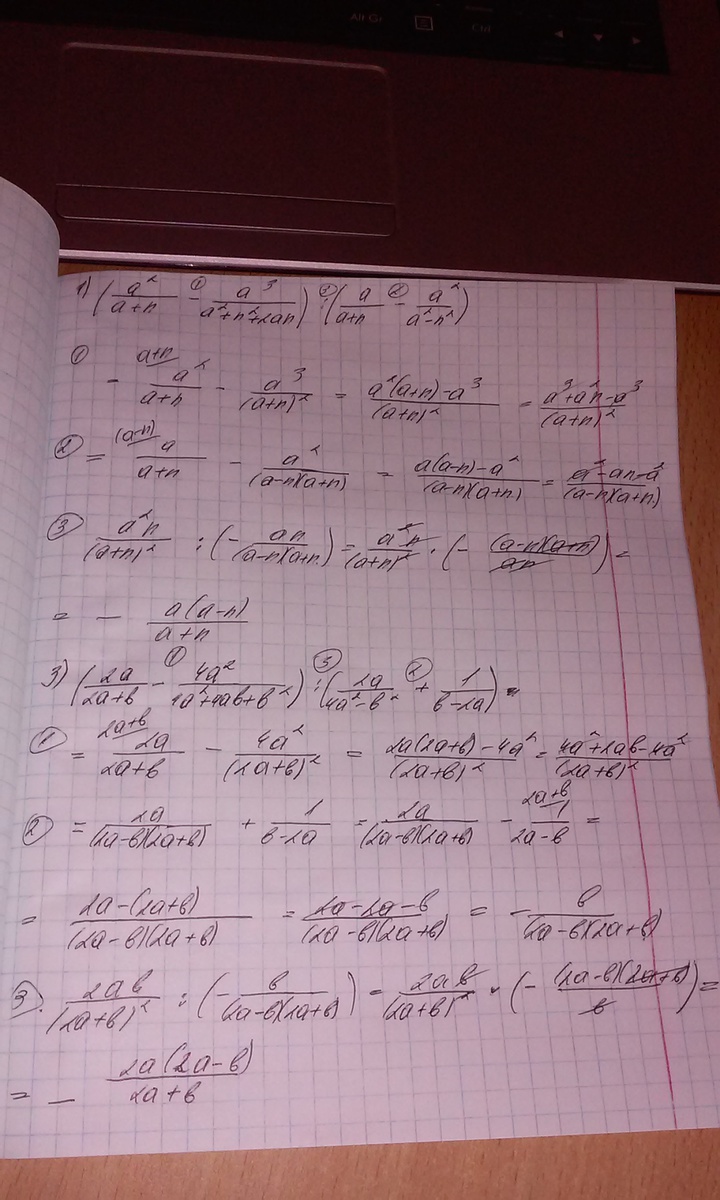 Alt Gr Ctrl
1) (a²/(a+n) - ① a³/(a²+n²+2an)) :③ (a/(a+n) -② a²/(a²-n²))
① - a²/(a+n) (a+n) - a³/(a+n)² = (a²(a+n)-a³)/(a+n)² = (a³+a²n-a³)/(a+n)²
② = a/(a+n) (a-n) - a²/((a-n)(a+n)) = (a(a-n)-a²)/((a-n)(a+n)) = (a²-an-a²)/((a-n)(a+n))
③ a²n/(a+n)² : (- an/((a-n)(a+n)) = a²n/(a+n)² · (- (a-n)(a+n)/an) =
= - a(a-n)/(a+n)
3) (2a/(2a+b) -① 4a²/(4a²+4ab+b²)) :③ (2a/(4a²-b²) +② 1/(b-2a)) =
① = 2a/(2a+b) (2a+b) - 4a²/(2a+b)² = (2a(2a+b)-4a²)/(2a+b)² = (4a²+2ab-4a²)/(2a+b)²
② = 2a/((2a-b)(2a+b)) + 1/(b-2a) = 2a/((2a-b)(2a+b)) - 1/(2a-b) (2a+b) =
= (2a-(2a+b))/((2a-b)(2a+b)) = (2a-2a-b)/((2a-b)(2a+b)) = - b/((2a-b)(2a+b))
③. 2ab/(2a+b)² : (- b/((2a-b)(2a+b))) = 2ab/(2a+b)² · (- (2a-b)(2a+b)/b) =
= - 2a(2a-b)/(2a+b)